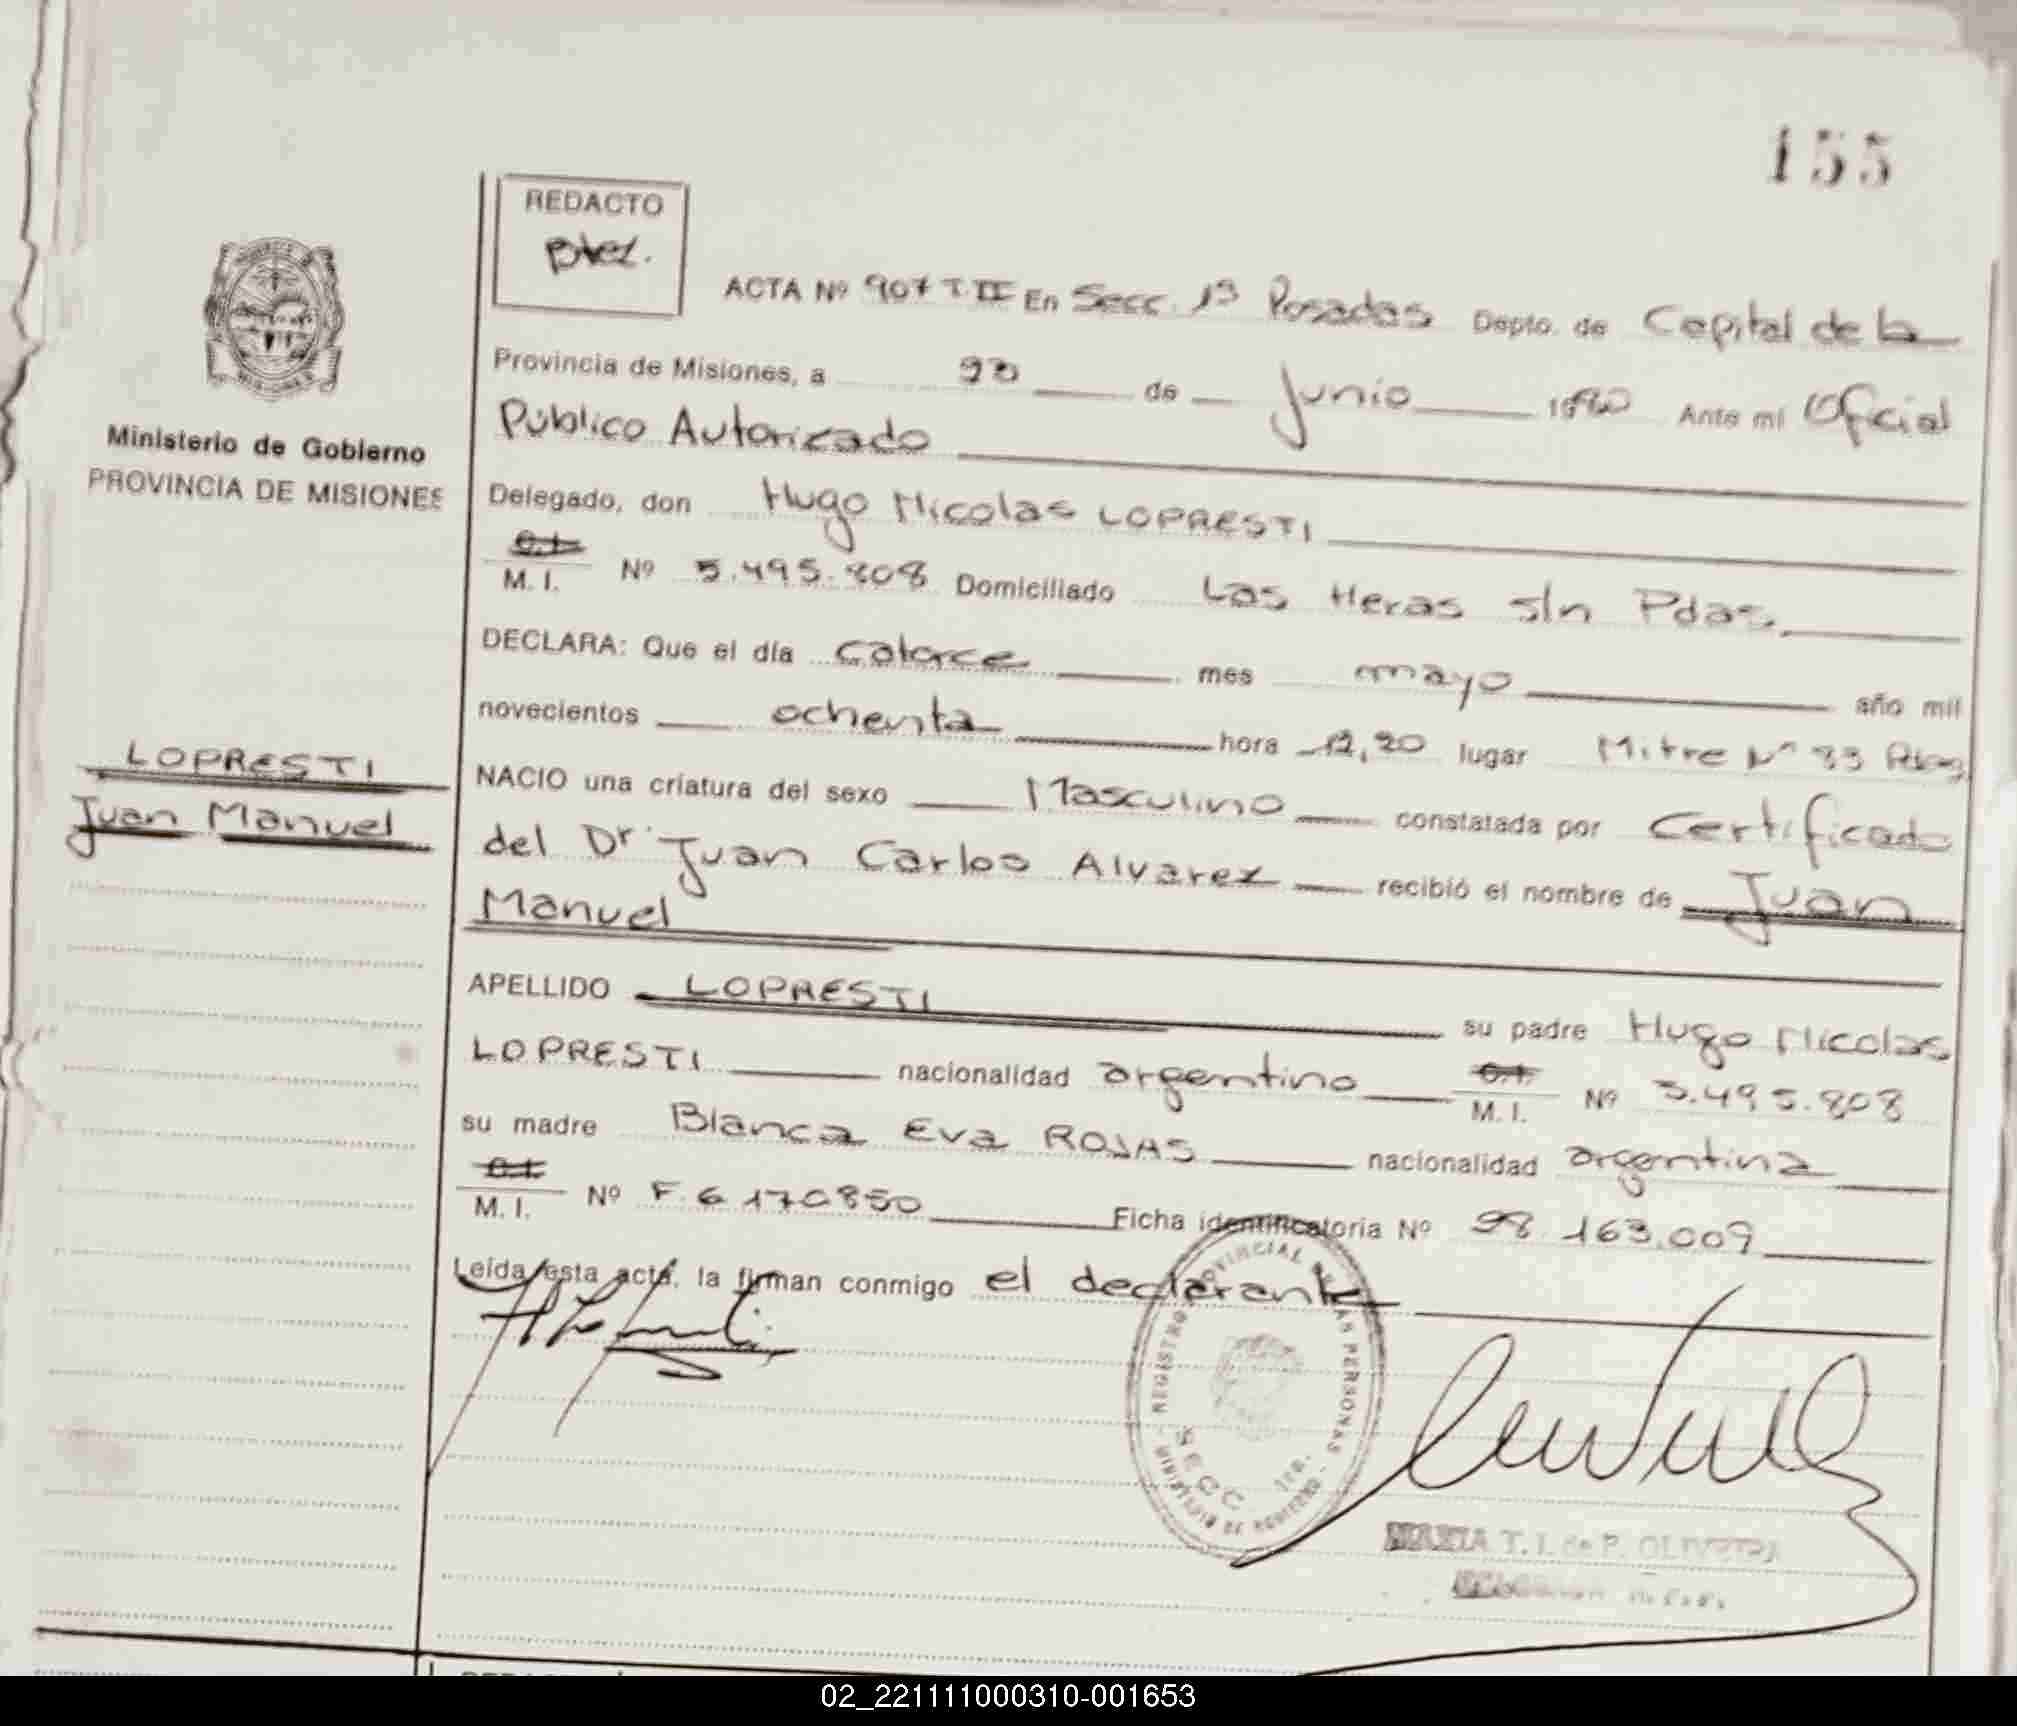 155
REDACTO
ACTA Nº 907 T. II En Secc. 1ª Posadas Depto. de Capital de la
Provincia de Misiones, a de Junio 1980 Ante mi Oficial
Público Autorizado
Delegado, don Hugo Nicolas LOPRESTI
C.I.
M. I. Nº 5.495.808 Domiciliado Las Heras s/n Pdas.
DECLARA: Que el día catorce mes mayo año mil
novecientos ochenta hora 12,20 lugar Mitre Nº Pdas
NACIO una criatura del sexo Masculino constatada por Certificado
del Dr Juan Carlos Alvarez recibió el nombre de Juan
Manuel
APELLIDO LOPRESTI su padre Hugo Nicolas
LOPRESTI nacionalidad argentino C.I. M. I. Nº 5.495.808
su madre Blanca Eva ROJAS nacionalidad argentina
C.I.
M. I. Nº F. 6 170850 Ficha identificatoria Nº 28 163.009
Leída esta acta, la firman conmigo el declarante
Ministerio de Gobierno
PROVINCIA DE MISIONES
LOPRESTI
Juan Manuel
REGISTRO PROVINCIAL DE LAS PERSONAS
MINISTERIO DE GOBIERNO
SECC. 1RA.
MARIA T. I. de P. OLIVEIRA
02_221111000310-001653